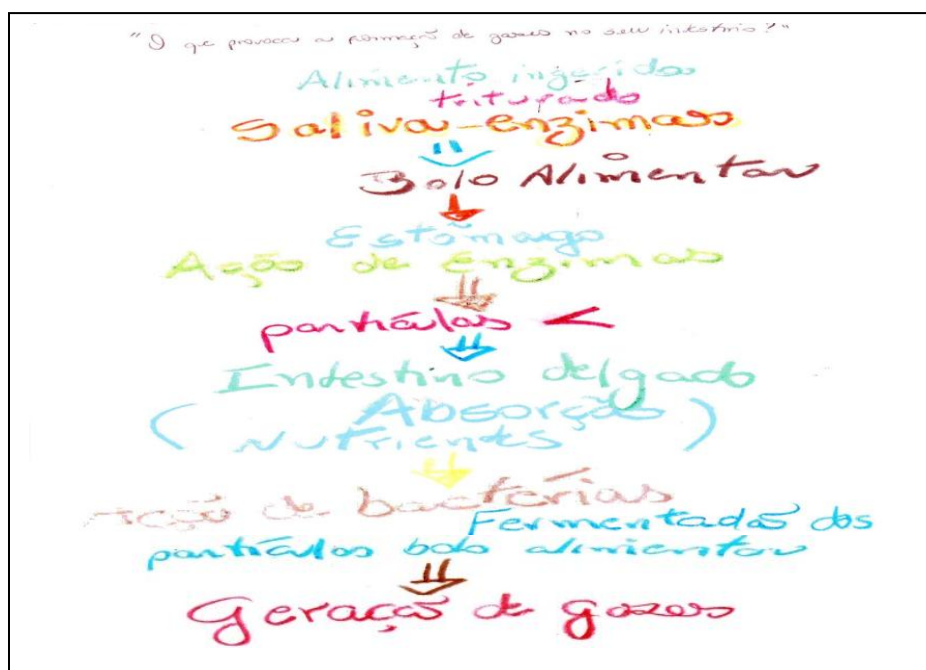 "O que provoca a formação de gazes no seu intestino?"
Alimento ingerido
triturado
Saliva-enzimas
Bolo Alimentar
Estômago
Ação de enzimas
partículas <
Intestino delgado
( Absorção )
Nutrientes
Ação de bactérias
Fermentadas das
partículas bolo alimentar
Geração de gazes